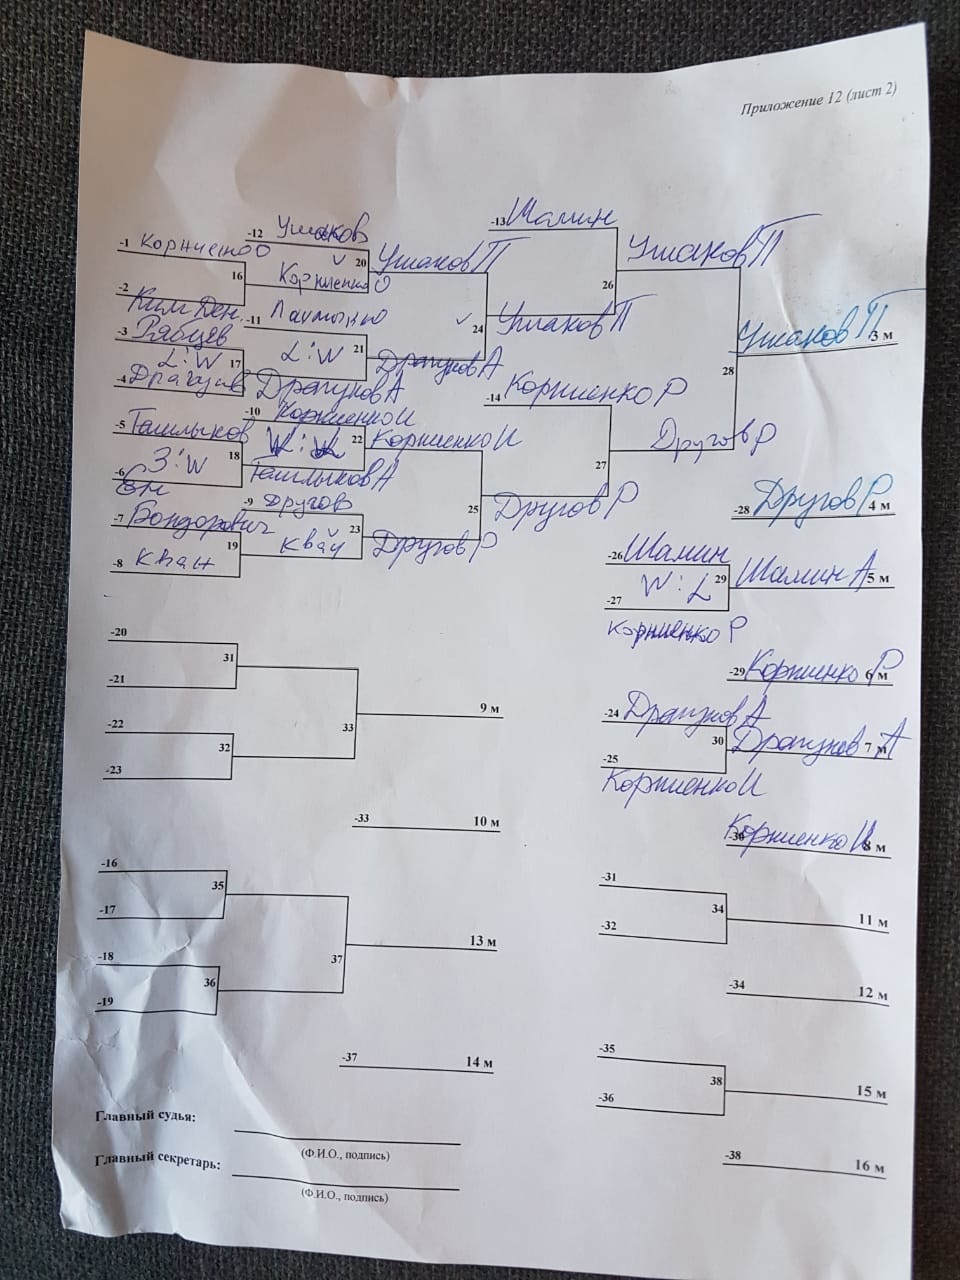 Приложение 12 (лист 2)
-13 Шалин
-12 Ушаков
-1 Корниенко О
20
Ушаков П
Ушаков П
16
Корниенко О
26
-2 Ким Ден.
-11
24
Ушаков П
Ушаков П 3 м
-3 Рябцев
L:W
17
L:W
21
Драгунов А
28
-4 Драгунов
Драгунов А
-14 Корниенко Р
-10 Корниенко И
-5
22
Корниенко И
Другов Р
3:W
18
27
-6
-9 Другов
25
Другов Р
-28 Другов Р 4 м
-7 Бондорович
23
Другов Р
19
Квай
-8
-26 Шалин
W:L
29
Шалин А 5 м
-27
Корниенко Р
-20
31
-21
-29 Корниенко Р 6 м
-24 Драгунов А
9 м
-22
33
30
Драгунов А 7 м
32
-25
-23
Корниенко И
-33 10 м
-30 Корниенко И 8 м
-16
35
-31
-17
34
11 м
-32
13 м
-18
37
36
-34 12 м
-19
-35
-37 14 м
38
15 м
-36
Главный судья:
(Ф.И.О., подпись)
-38 16 м
Главный секретарь:
(Ф.И.О., подпись)